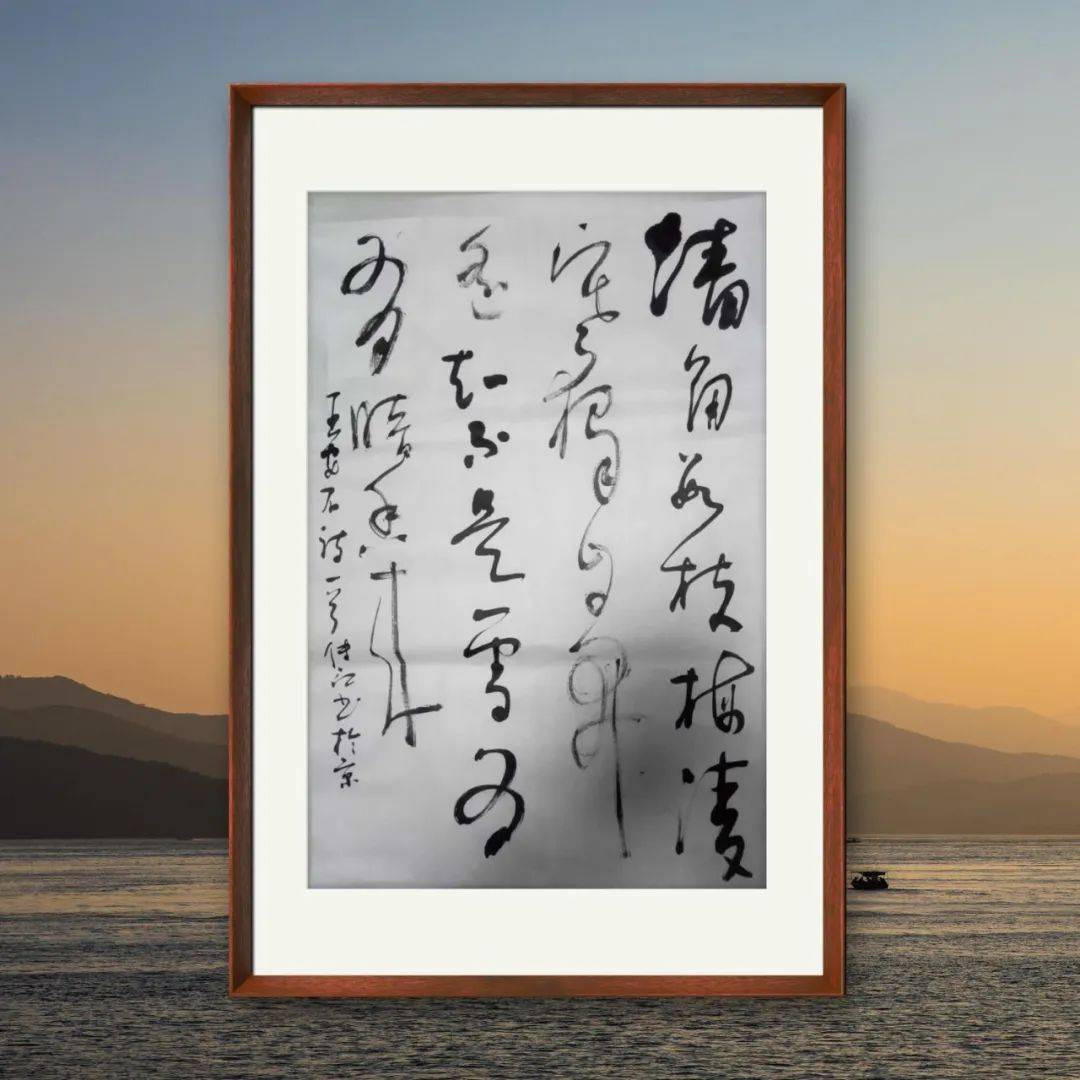 墙角数枝梅凌
寒独自开
遥知不是雪为
有暗香来
王安石诗一首 江书於京